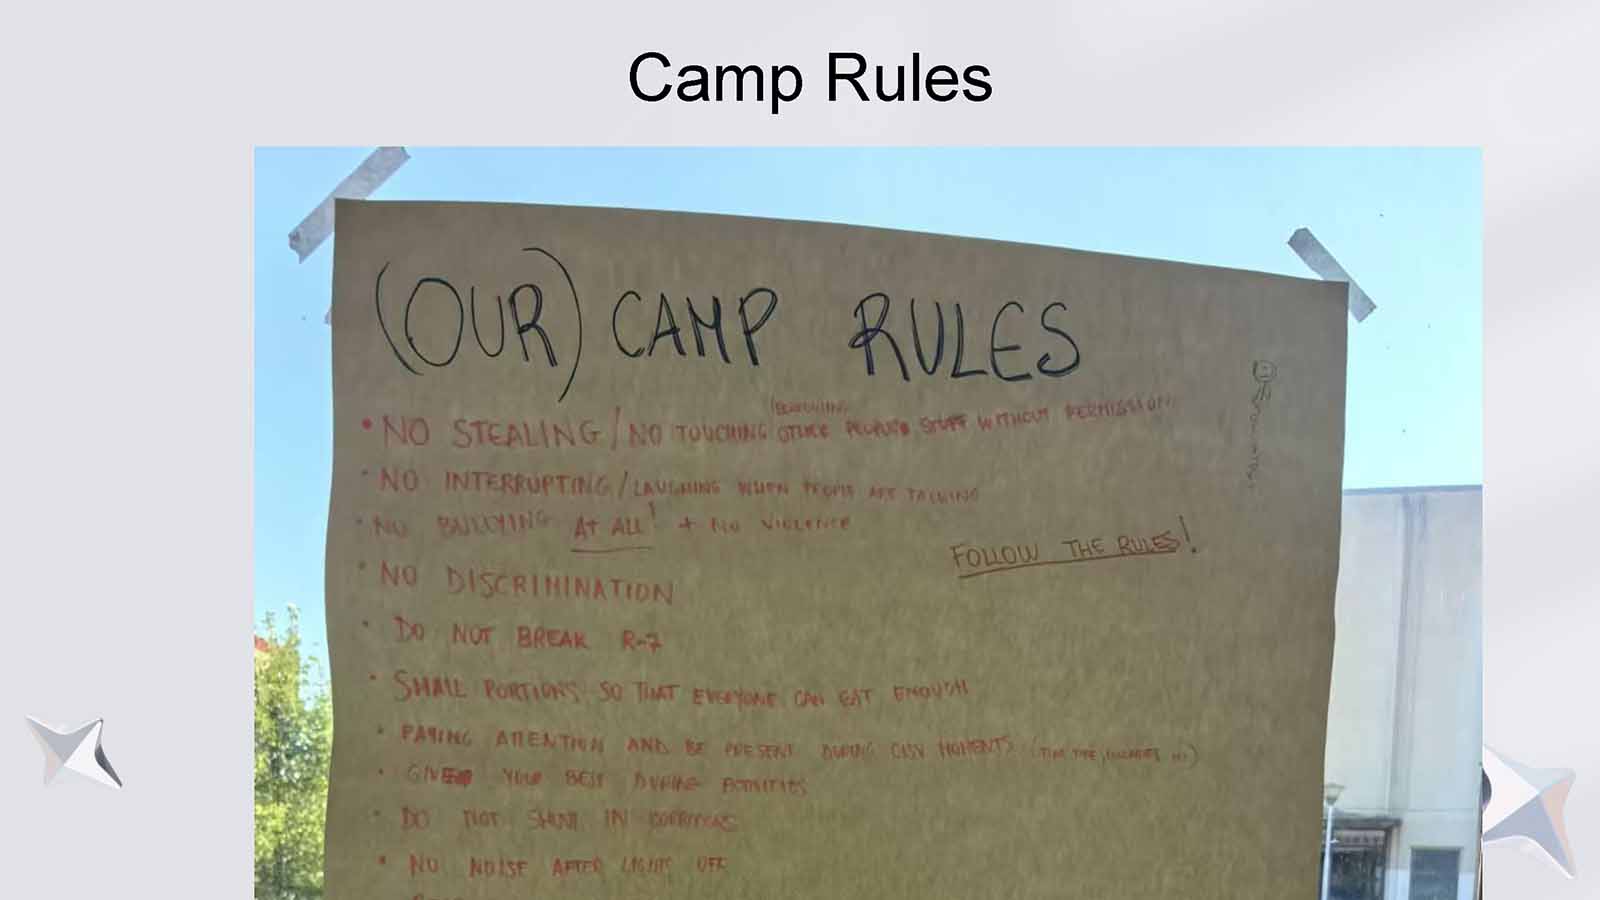 Camp Rules
(OUR) CAMP RULES
/BORROWING
• NO STEALING/NO TOUCHING OTHER PEOPLE'S STUFF WITHOUT PERMISSION
• NO INTERRUPTING/LAUGHING WHEN PEOPLE ARE TALKING
• NO BULLYING AT ALL! + NO VIOLENCE
FOLLOW THE RULES!
• NO DISCRIMINATION
• DO NOT BREAK R-7
• SMALL PORTIONS, SO THAT EVERYONE CAN EAT ENOUGH
• PAYING ATTENTION AND BE PRESENT DURING CISV MOMENTS
• GIVE YOUR BEST DURING ACTIVITIES
• DO NOT SHOUT IN CORRIDORS
• NO NOISE AFTER LIGHTS OFF